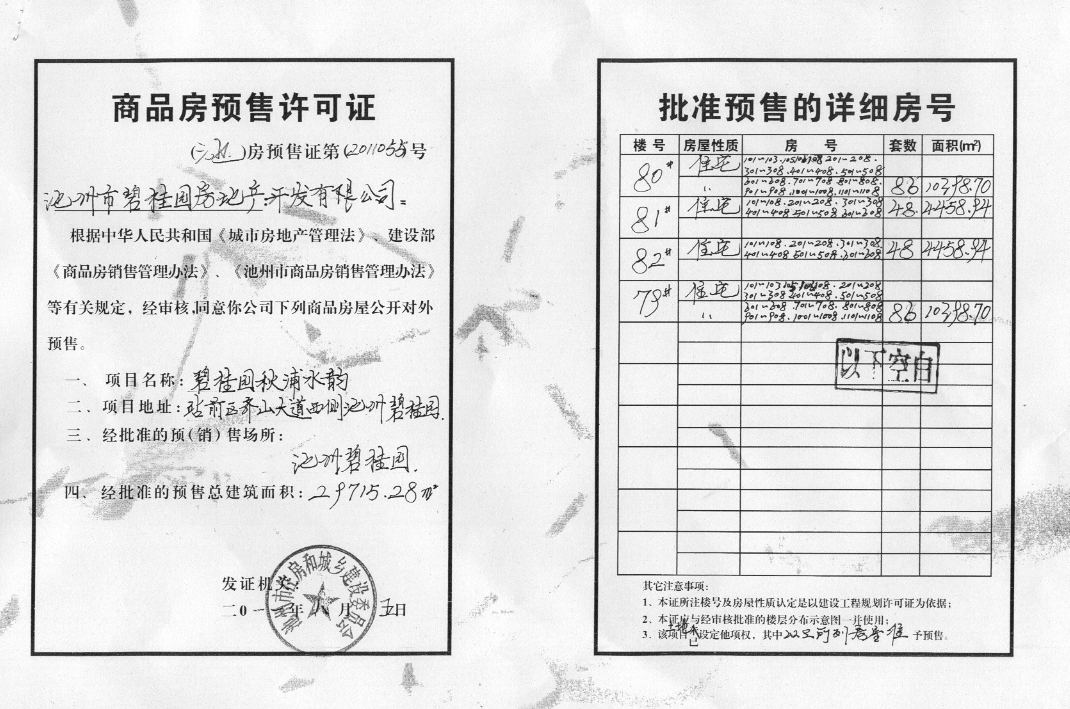 商品房预售许可证
(池)房预售证第(2011055号
池州市碧桂园房地产开发有限公司:
根据中华人民共和国《城市房地产管理法》、建设部
《商品房销售管理办法》、《池州市商品房销售管理办法》
等有关规定，经审核,同意你公司下列商品房屋公开对外
预售。
一、项目名称:碧桂园秋浦水韵
二、项目地址:站前区齐山大道西侧池州碧桂园.
三、经批准的预(销)售场所:
池州碧桂园.
四、经批准的预售总建筑面积:29715.28m²
发证机关:
二0一一年八月五日
池州市住房和城乡建设委员会
批准预售的详细房号
楼号 房屋性质 房号 套数 面积(m²)
80# 住宅 101~103.105 108.201~208.
301~308.401~408.501~508
〃 601~608.701~708.801~808.
901~908.1001~1008.1101~1108 86 10398.70
81# 住宅 101~108.201~208.301~308 48 4458.94
401~408.501~508.601~608
82# 住宅 101~108.201~208.301~308 48 4458.94
401~408.501~508.601~608
79# 住宅 101~103.105 108.201~208
301~308.401~408.501~508
〃 601~608.701~708.801~808
901~908.1001~1008.1101~1108 86 10398.70
以下空白
其它注意事项:
1、本证所注楼号及房屋性质认定是以建设工程规划许可证为依据;
2、本证应与经审核批准的楼层分布示意图一并使用;
3、该项目土地已设定他项权，其中以上所列房号准予预售。